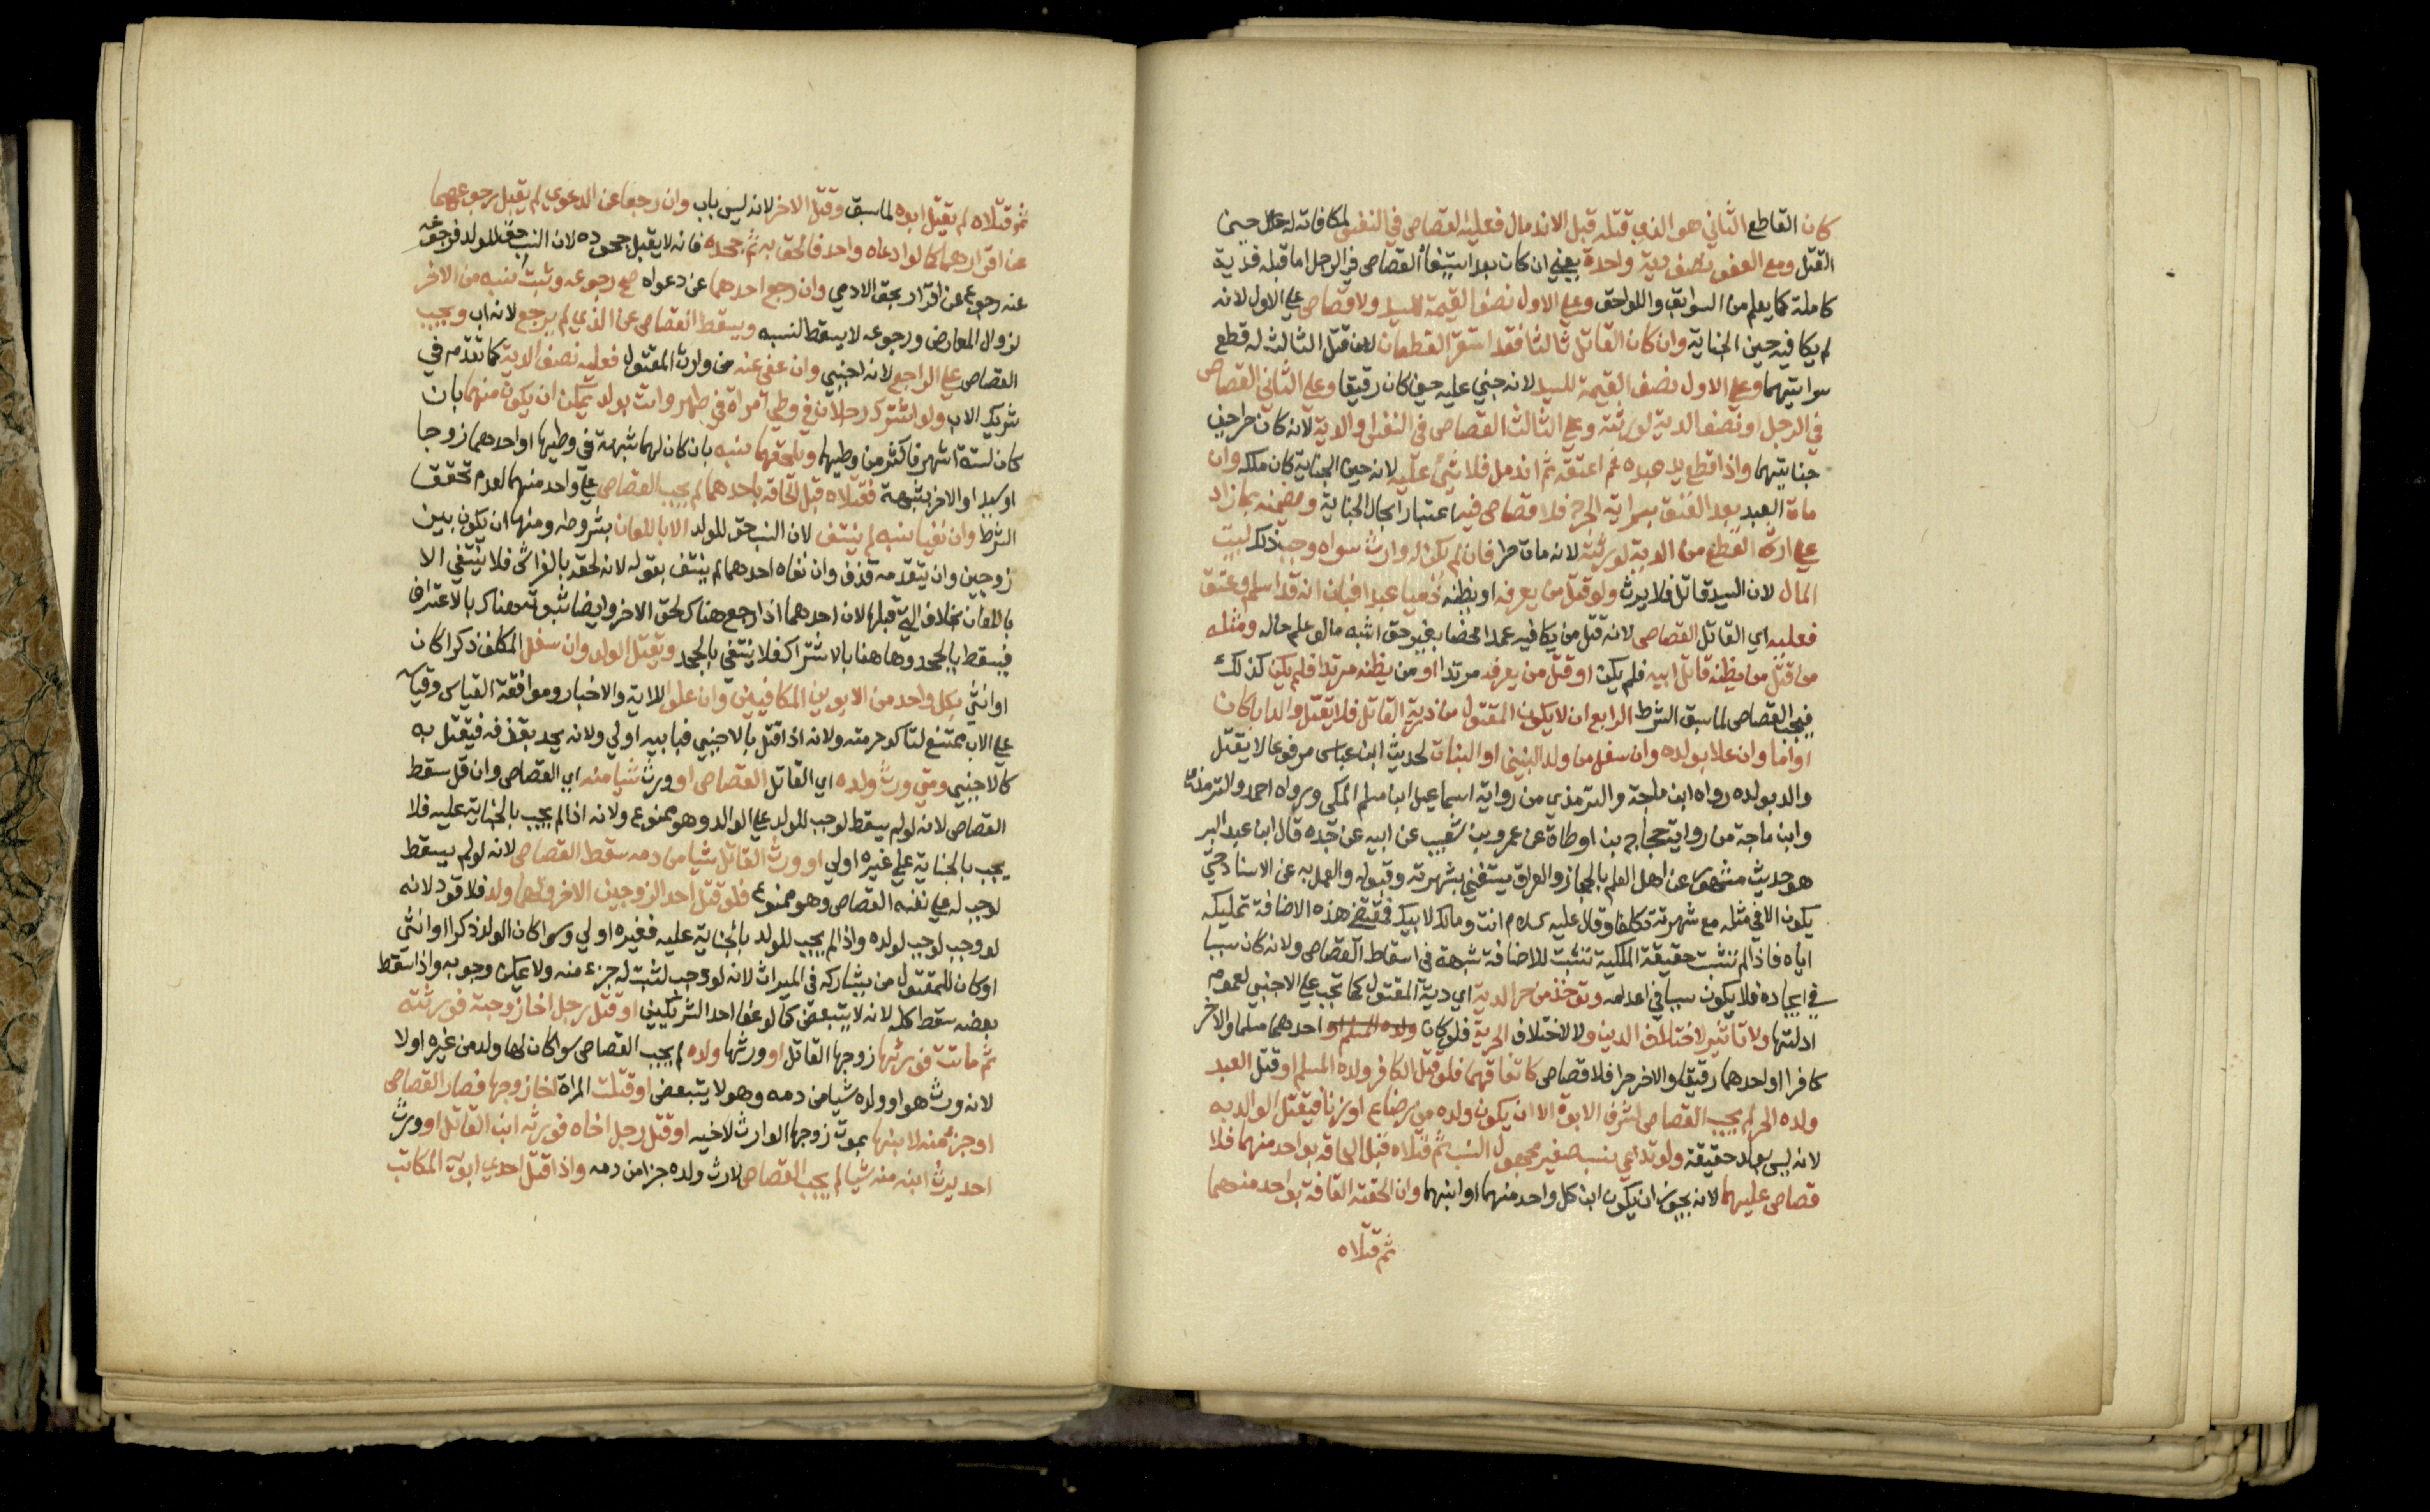 كان القاطع الثاني هو الذي قتله قبل الاندمال فعليه القصاص في النفس لمكافاته له حال حين
القتل ومع العفو نصف دية واحدة يعني ان كان بعد استيفاء القصاص في الرجل اما قبله فدية
كاملة كما يعلم من السوابق واللواحق وعلي الاول نصف القيمة للسيد ولا قصاص علي الاول لانه
لم يكافيه حين الجناية وان كان القاتل ثالثا فقد استقر القطعان لان قتل الثالث له قطع
سرايتهما وعلي الاول نصف القيمة للسيد لانه جني عليه حين كان رقيقا وعلي الثاني القصاص
في الرجل او نصف الدية لورثته وعلي الثالث القصاص في النفس او الدية لانه كان حرا حين
جنايتهما واذا قطع يد عبده ثم اعتقه ثم اندمل فلا شئ عليه لانه حين الجناية كان ملكه وان
مات العبد بعد العتق بسراية الجرح فلا قصاص فيه اعتبارا بحال الجناية ويضمنه بما زاد
علي ارش القطع من الدية لورثته لانه مات حرا فان لم يكن له وارث سواه وجب ذلك لبيت
المال لان السيد قاتل فلا يرث ولو قتل من يعرفه او يظنه ذميا عبدا فبان انه قد اسلم وعتق
فعليه اي القاتل القصاص لانه قتل من يكافيه عمدا محضا بغير حق اشبه ما لو علم حاله ومثله
من قتل من يظنه قاتل ابيه فلم يكن او قتل من يعرفه مرتدا او من يظنه مرتدا فلم يكن كذلك
فيجب القصاص لما سبق الشرط الرابع ان لا يكون المقتول من ذرية القاتل فلا يقتل والد ابا كان
او اما وان علا بولده وان سفل من ولد البنين او البنات لحديث ابن عباس مرفوعا لا يقتل
والد بولده رواه ابن ماجة والترمذي من رواية اسماعيل ابن مسلم المكي ورواه احمد والترمذي
وابن ماجة من رواية حجاج بن اوطاة عن عمرو بن شعيب عن ابيه عن جده قال ابن عبد البر
هو حديث مشهور عن اهل العلم بالحجاز والعراق مستغني بشهرته وقبوله والعمل به عن الاسناد حتي
يكون الا في مثله مع شهرته تكلفا وقال عليه السلام انت ومالك لابيك فمقتضي هذه الاضافة تمليكه
اياه فاذا لم تثبت حقيقة الملكية تثبت للاضافة شبهة في اسقاط القصاص ولانه كان سببا
في ايجاده فلا يكون سببا في اعدامه وتوخذ من حر الدية اي دية المقتول كما تجب علي الاجنبي لعموم
ادلتها ولا تاثير لاختلاف الدين ولا لاختلاف الحرية فلو كان ولده المسلم او احدهما مسلما والاخر
كافرا او احدهما رقيقا والاخر حرا فلا قصاص كاتفاقهما فلو قتل الكافر ولده المسلم او قتل العبد
ولده الحر لم يجب القصاص لشرف الابوة الا ان يكون ولده من رضاع او زنا فيقتل الوالد به
لانه ليس بولد حقيقة ولو تداعي نسب صغير مجهول النسب ثم قتلاه قبل الحاقه بواحد منهما فلا
قصاص عليهما لانه يجوز ان يكون ابن كل واحد منهما او ابنهما وان الحقته القافة بواحد منهما
ثم قتلاه
ثم قتلاه لم يقتل ابوه لما سبق وقتل الاخر لانه ليس باب وان رجعا عن الدعوي لم يقبل رجوعهما
عن اقرارهما كما لو ادعاه واحد فالحق به ثم جحده فانه لا يقبل جحوده لان النسب حق للولد فرجوعه
عنه رجوع عن اقرار بحق الادمي وان رجع احدهما عن دعواه صح رجوعه وثبت نسبه من الاخر
لزوال المعارض ورجوعه لا يسقط نسبه ويسقط القصاص عن الذي لم يرجع لانه اب ويجب
القصاص علي الراجع لانه اجنبي وان عفي عنه من وارث المقتول فعليه نصف الدية كما تقدم في
شريك الاب ولو اشترك رجلان في وطي امراة في طهر واتت بولد يمكن ان يكون منهما بان
كان لستة اشهر فاكثر من وطيهما ويلحقهما نسبه بان كان لهما شبهة في وطيها او احدهما زوجا
او سيدا والاخر بشبهة فقتلاه قبل الحاقه باحدهما لم يجب القصاص علي واحد منهما لعدم تحقق
الشرط وان نفيا نسبه لم ينتف لان النسب حق للولد الا باللعان بشروطه ومنها ان يكون بين
زوجين وان يتقدمه قذف وان نفاه احدهما لم ينتف بقوله لانه لحقه بالفراش فلا ينتفي الا
باللعان بخلاف التي قبلها لان احدهما اذا رجع هناك لحق الاخر وايضا ثبوته هناك بالاعتراف
فيسقط بالجحد وهاهنا بالاشتراك فلا ينتفي بالجحد ويقتل الولد وان سفل المكلف ذكرا كان
او انثي بكل واحد من الابوين المكافيين وان علوا للاية والاخبار وموافقة القياس وقياسه
علي الاب ممتنع لتاكد حرمته ولانه اذا قتل بالاجنبي فبابيه اولي ولانه يحد بقذفه فيقتل به
كالاجنبي ومتي ورث ولده اي القاتل القصاص او ورث شيا منه اي القصاص وان قل سقط
القصاص لانه لو لم يسقط لوجب للولد علي الوالد وهو ممنوع ولانه اذا لم يجب بالجناية عليه فلا
يجب بالجناية علي غيره اولي او ورث القاتل شيا من دمه سقط القصاص لانه لو لم يسقط
لوجب له علي نفسه القصاص وهو ممنوع فلو قتل احد الزوجين الاخر ولهما ولد فلا قود لانه
لو وجب لوجب لولده واذا لم يجب للولد بالجناية عليه فغيره اولي وسوا كان الولد ذكرا او انثي
او كان للمقتول من يشاركه في الميراث لانه لو وجب لثبت له جزء منه ولا يمكن وجوبه واذا سقط
بعضه سقط كله لانه لا يتبعض كما لو عفا احد الشريكين او قتل رجل اخا زوجته فورثته
ثم ماتت فورثها زوجها القاتل او ورثها ولده لم يجب القصاص سوا كان لها ولد من غيره او لا
لانه ورث هو او ولده شيا من دمه وهو لا يتبعض او قتلت المراة اخا زوجها فصار القصاص
او جزء منه لابنها بموت زوجها الوارث لاخيه او قتل رجل اخاه فورثه ابن القاتل او ورث
احد يرث ابنه منه شيا لم يجب القصاص لارث ولده جزا من دمه واذا قتل احدي ابوي المكاتب